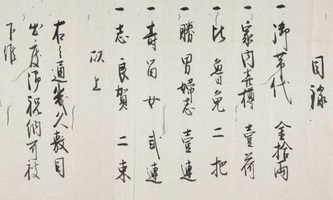 目録
一 御帯代 金拾両
一 家内喜樽 壱荷
一 比魯免 二把
一 勝男婦志 壱連
一 寿留女 弐連
一 志良賀 二束
以上
右之通幾久敷目
出度御祝納可被
下候